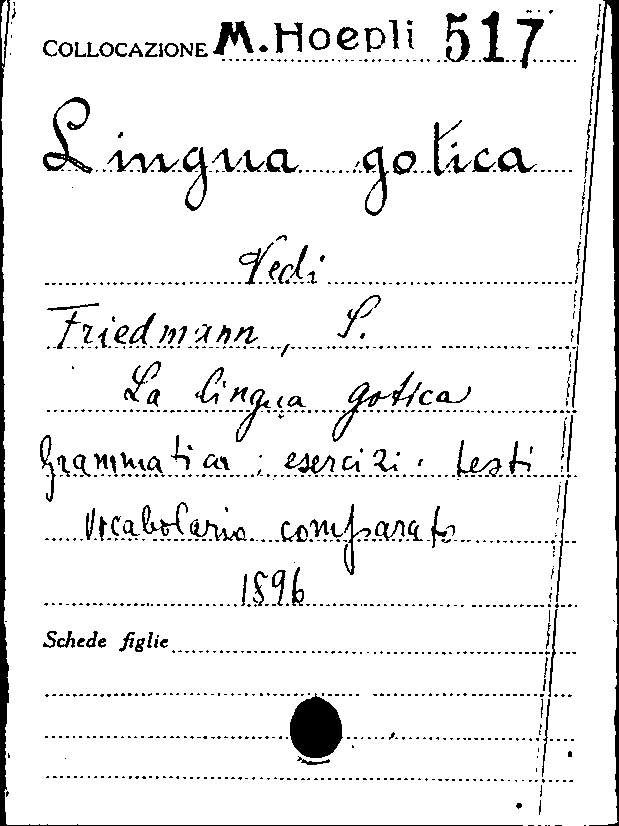 COLLOCAZIONE M. Hoepli 517
Lingua gotica
Vedi
Friedmann, S.
La lingua gotica
Grammatica; esercizi. testi
Vocabolario comparato
1896
Schede figlie